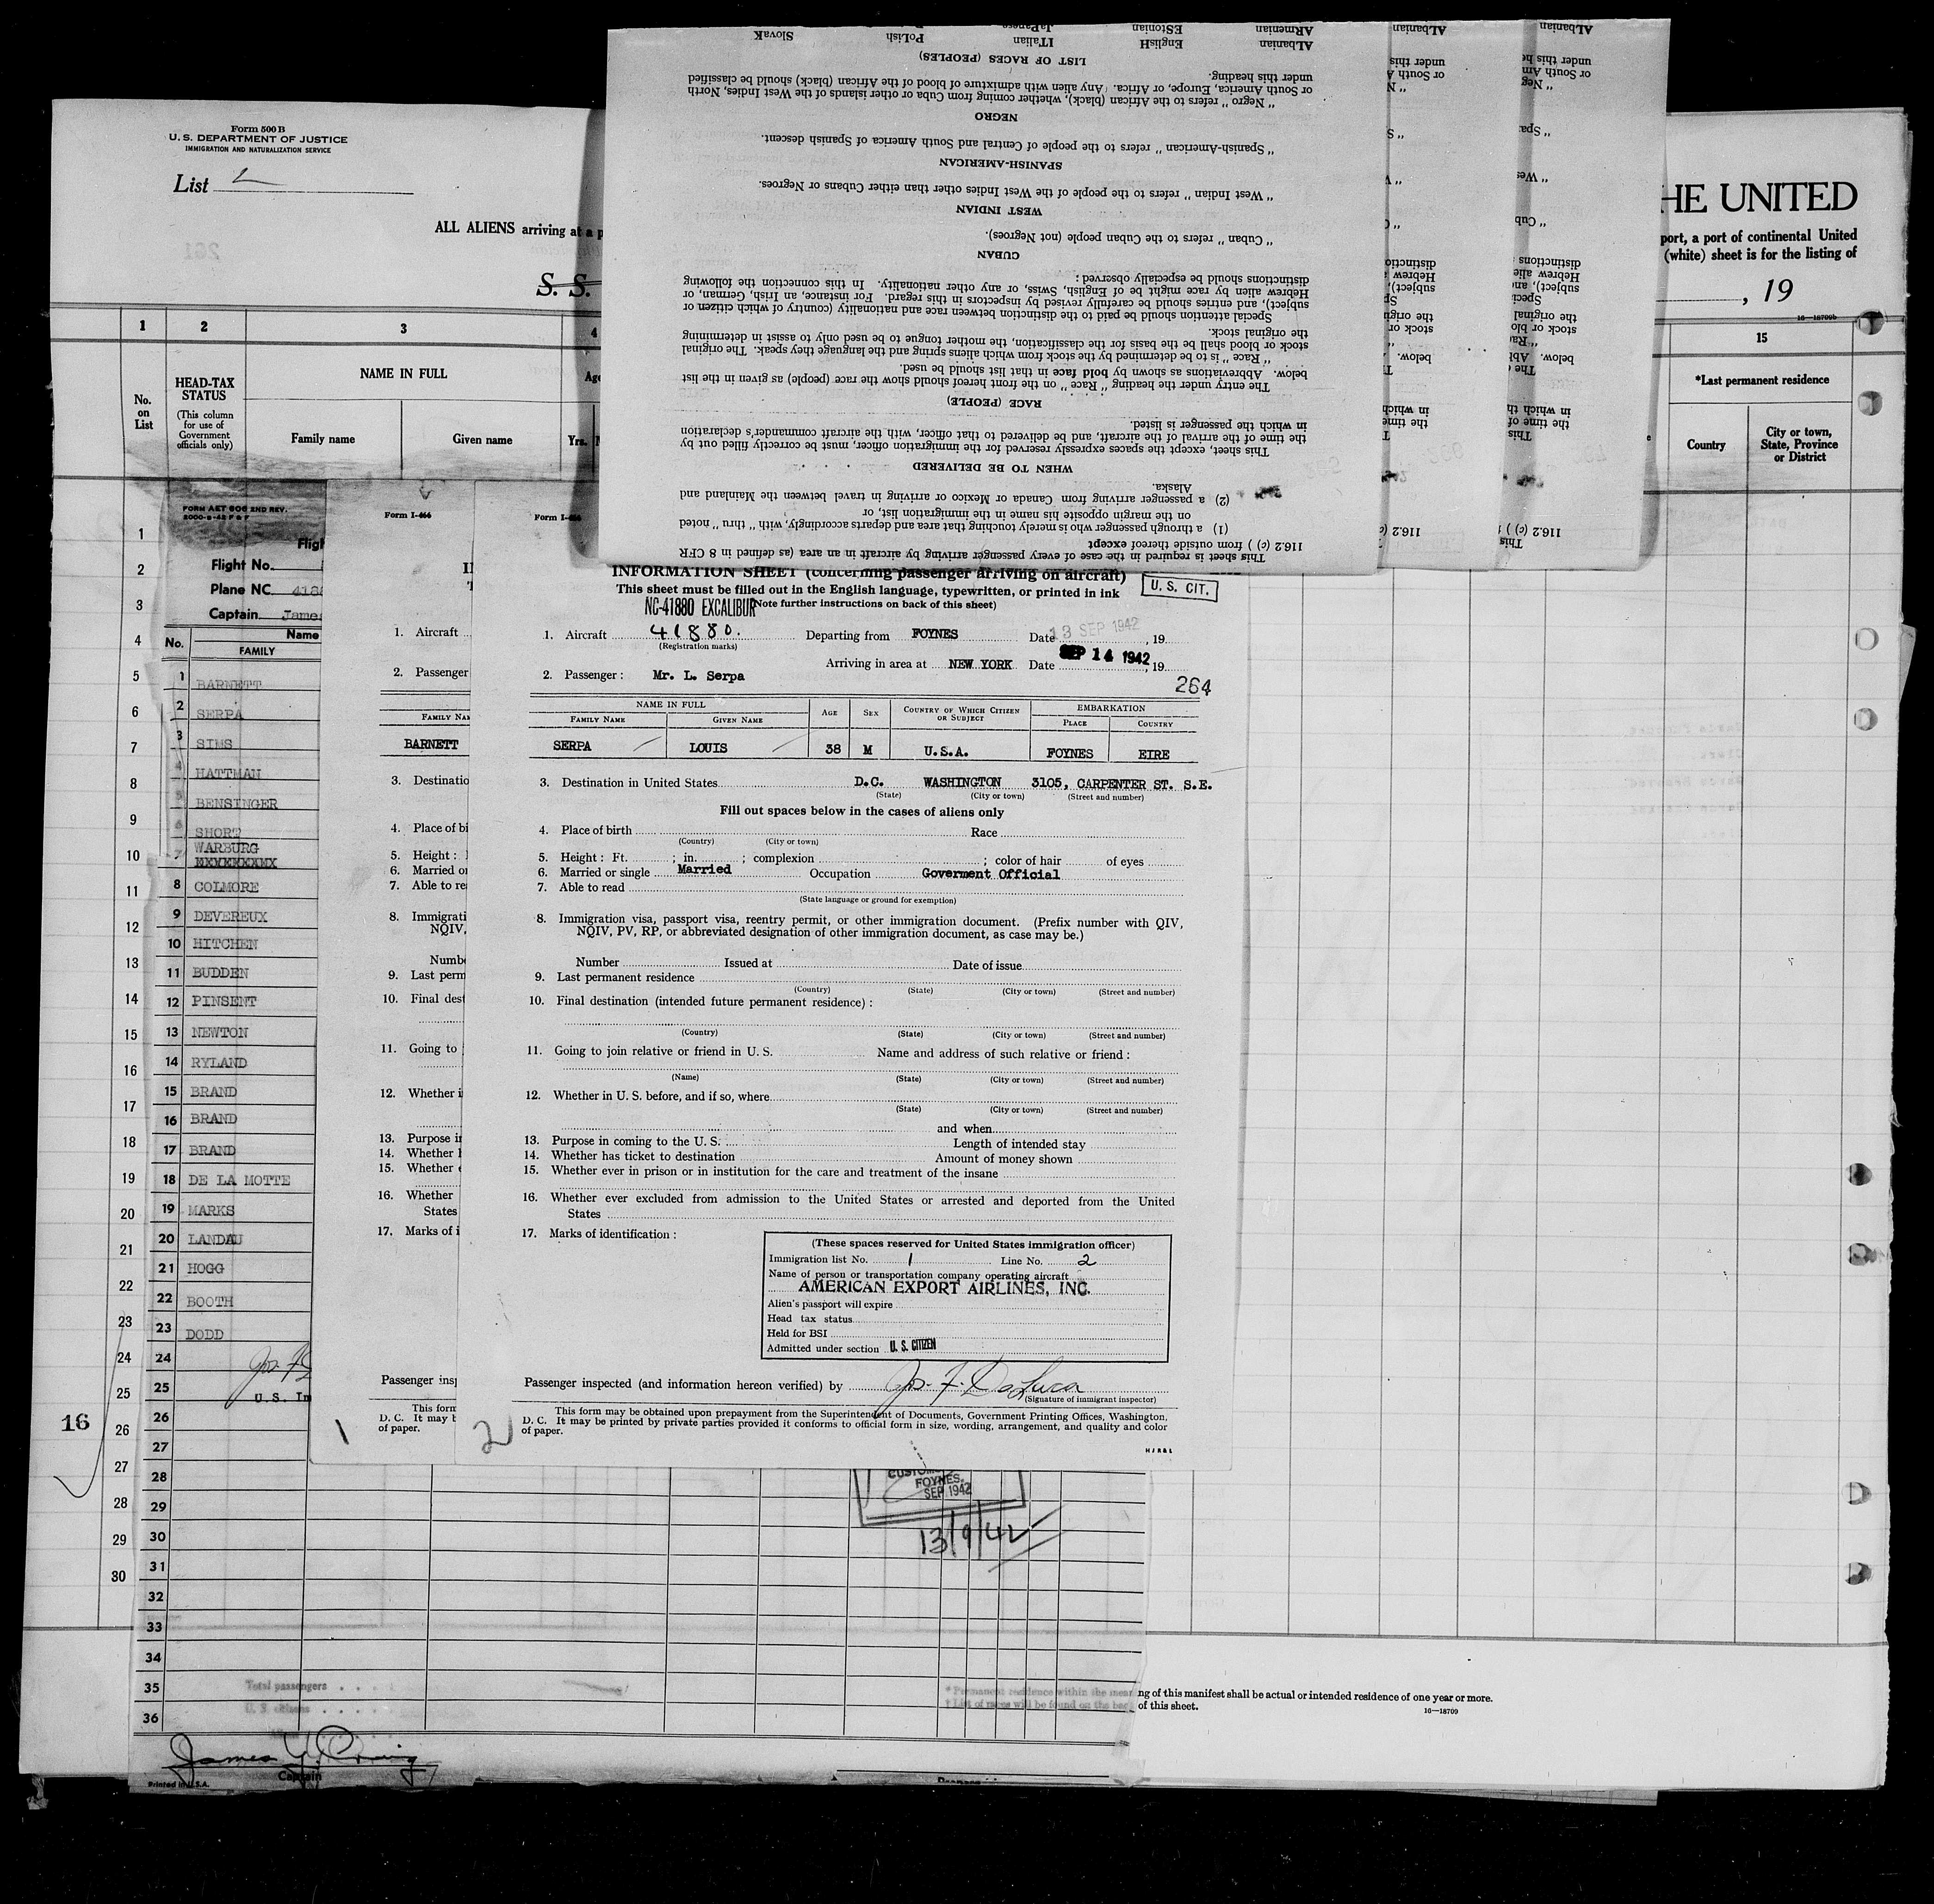 Form 500 B
U. S. DEPARTMENT OF JUSTICE
IMMIGRATION AND NATURALIZATION SERVICE
List
ALL ALIENS arriving at a p
S. S.
1 2 3 4
No. on List
HEAD-TAX STATUS
(This column for use of Government officials only)
NAME IN FULL
Family name
Given name
Yrs.
HE UNITED
port, a port of continental United
(white) sheet is for the listing of
, 19
16—18709b
15
*Last permanent residence
Country
City or town, State, Province or District
This sheet is required in the case of every passenger arriving by aircraft in an area (as defined in 8 CFR
116.2 (c) ) from outside thereof except
(1) a through passenger who is merely touching that area and departs accordingly, with "thru" noted
on the margin opposite his name in the immigration list, or
(2) a passenger arriving from Canada or Mexico or arriving in travel between the Mainland and
Alaska.
WHEN TO BE DELIVERED
This sheet, except the spaces expressly reserved for the immigration officer, must be correctly filled out by
the time of the arrival of the aircraft, and be delivered to that officer, with the aircraft commander's declaration
in which the passenger is listed.
RACE (PEOPLE)
The entry under the heading "Race" on the front hereof should show the race (people) as given in the list
below. Abbreviations as shown by bold face in that list should be used.
"Race" is to be determined by the stock from which aliens spring and the language they speak. The original
stock or blood shall be the basis for the classification, the mother tongue to be used only to assist in determining
the original stock.
Special attention should be paid to the distinction between race and nationality (country of which citizen or
subject), and entries should be carefully revised by inspectors in this regard. For instance, an Irish, German, or
Hebrew alien by race might be of English, Swiss, or any other nationality. In this connection the following
distinctions should be especially observed:
CUBAN
"Cuban" refers to the Cuban people (not Negroes).
WEST INDIAN
"West Indian" refers to the people of the West Indies other than either Cubans or Negroes.
SPANISH-AMERICAN
"Spanish-American" refers to the people of Central and South America of Spanish descent.
NEGRO
"Negro" refers to the African (black), whether coming from Cuba or other islands of the West Indies, North
or South America, Europe, or Africa. Any alien with admixture of blood of the African (black) should be classified
under this heading.
LIST OF RACES (PEOPLES)
ALbanian ENglisH ITalian POLish SlovaK
ARMenian EStonian JaPanese
FORM AET 606 2ND REV.
2000-8-42 P & F
Fligh
Flight No.
Plane NC. 418
Captain James
No. Name
FAMILY
1 BARNETT
2 SERPA
3 SIMS
4 HATTMAN
5 BENSINGER
6 SHORT
7 WARBURG
8 COLMORE
9 DEVEREUX
10 HITCHEN
11 BUDDEN
12 PINSENT
13 NEWTON
14 RYLAND
15 BRAND
16 BRAND
17 BRAND
18 DE LA MOTTE
19 MARKS
20 LANDAU
21 HOGG
22 BOOTH
23 DODD
24
25
U.S. In
26
27
28
29
30
31
32
33
34
35
36
Total passengers
U. S. citizens
James Y. Craig
Captain
Printed in U.S.A.
16
Form I-466
1. Aircraft
2. Passenger
BARNETT
3. Destinatio
4. Place of bi
5. Height :
6. Married or
7. Able to re
8. Immigrati
NQIV,
Numbe
9. Last perm
10. Final dest
11. Going to
12. Whether i
13. Purpose in
14. Whether
15. Whether
16. Whether
States
17. Marks of i
Passenger insp
This form
D. C. It may b
of paper.
1
Form I-466
INFORMATION SHEET (concerning passenger arriving on aircraft)
This sheet must be filled out in the English language, typewritten, or printed in ink
NC-41880 EXCALIBUR
Note further instructions on back of this sheet)
U. S. CIT.
1. Aircraft 41880. Departing from FOYNES Date 13 SEP 1942, 19
(Registration marks)
Arriving in area at NEW YORK Date SEP 14 1942, 19
2. Passenger : Mr. L. Serpa
264
NAME IN FULL
FAMILY NAME GIVEN NAME AGE SEX COUNTRY OF WHICH CITIZEN OR SUBJECT EMBARKATION
PLACE COUNTRY
SERPA LOUIS 38 M U.S.A. FOYNES EIRE
3. Destination in United States D.C. WASHINGTON 3105, CARPENTER ST. S.E.
(State) (City or town) (Street and number)
Fill out spaces below in the cases of aliens only
4. Place of birth Race
(Country) (City or town)
5. Height : Ft. ; in. ; complexion ; color of hair of eyes
6. Married or single Married Occupation Goverment Official
7. Able to read
(State language or ground for exemption)
8. Immigration visa, passport visa, reentry permit, or other immigration document. (Prefix number with QIV,
NQIV, PV, RP, or abbreviated designation of other immigration document, as case may be.)
Number Issued at Date of issue
9. Last permanent residence
(Country) (State) (City or town) (Street and number)
10. Final destination (intended future permanent residence) :
(Country) (State) (City or town) (Street and number)
11. Going to join relative or friend in U. S. Name and address of such relative or friend :
(Name) (State) (City or town) (Street and number)
12. Whether in U. S. before, and if so, where
(State) (City or town) (Street and number)
and when
13. Purpose in coming to the U. S. Length of intended stay
14. Whether has ticket to destination Amount of money shown
15. Whether ever in prison or in institution for the care and treatment of the insane
16. Whether ever excluded from admission to the United States or arrested and deported from the United
States
17. Marks of identification :
(These spaces reserved for United States immigration officer)
Immigration list No. 1 Line No. 2
Name of person or transportation company operating aircraft
AMERICAN EXPORT AIRLINES, INC.
Alien's passport will expire
Head tax status
Held for BSI
Admitted under section U. S. CITIZEN
Passenger inspected (and information hereon verified) by Jos. F. DeLuca
(Signature of immigrant inspector)
This form may be obtained upon prepayment from the Superintendent of Documents, Government Printing Offices, Washington,
D. C. It may be printed by private parties provided it conforms to official form in size, wording, arrangement, and quality and color
of paper.
2
FOYNES.
SEP 1942
13/9/42
* Permanent residence within the meaning of this manifest shall be actual or intended residence of one year or more.
† List of races will be found on the back of this sheet.
16—18709